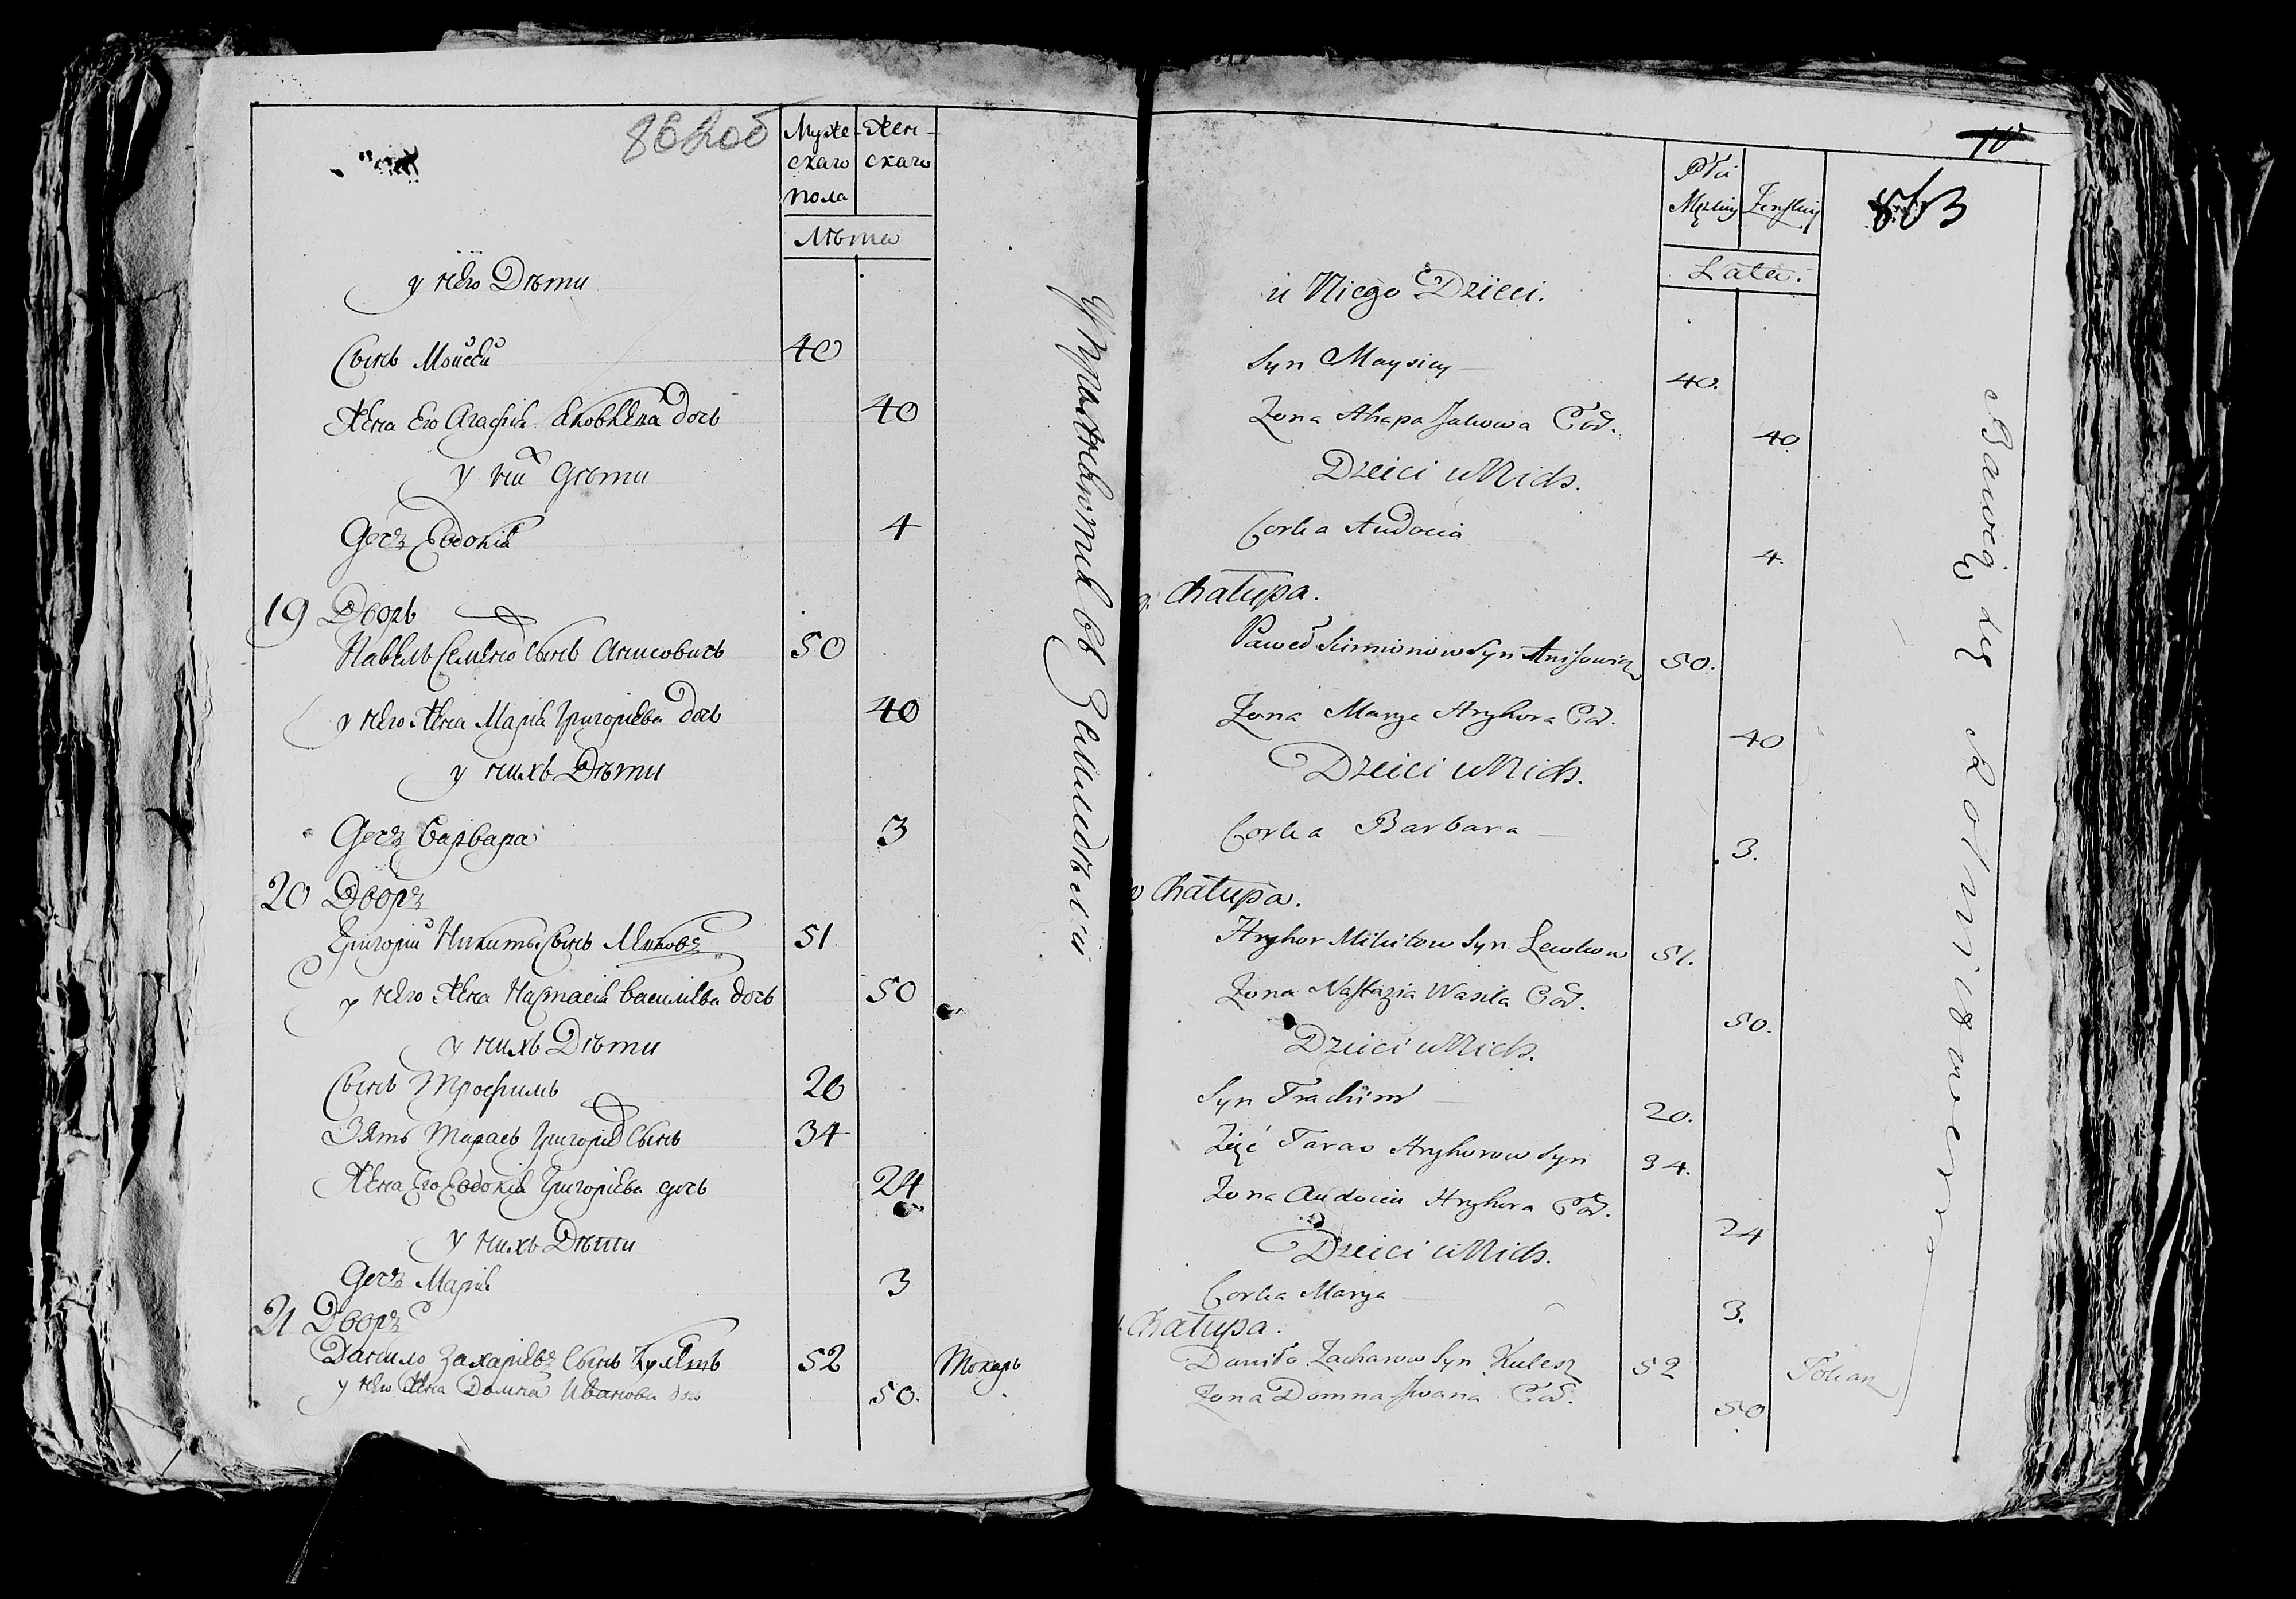 862об
Муже- Жен-
скаго скаго
пола
Лѣта
у него Дѣти
Сынъ Моисей 40
Жена Его Агафия Яковлева дочь 40
у них Дѣти
Дочъ Евдокия 4
19 Дворъ
Павелъ Семенов Сынъ Анисовичъ 50
у него Жена Мария Григориева дочь 40
у нихъ Дѣти
Дочъ Варвара 3
20 Дворъ
Григорий Никитъ Сынъ Левковъ 51
у него Жена Настасия Василиева дочь 50
у нихъ Дѣти
Сынъ Трофимъ 20
Зять Тарасъ Григориев Сынъ 34
Жена Его Евдокия Григориева дочь 24
у нихъ Дѣти
Дочъ Мария 3
21 Дворъ
Данило Захариевъ Сынъ Кулешъ 52 Токарь
у него Жена Домна Иванова дочь 50.
Упражняются въ Земледѣлии
10
863
Płci
Męzkiey Zenskiey
Lata.
u Niego Dzieci.
Syn Maysiey 40.
Zona Ahapa Jakowa Cod. 40.
Dzieci u Nich.
Corka Audocia 4.
Chałupa.
Paweł Simionow Syn Anisowicz 50.
Zona Marya Hryhora Cod. 40
Dzieci u Nich.
Corka Barbara 3.
Chałupa.
Hryhor Mikitow Syn Lewkow 51.
Zona Nastazia Wasila Cod. 50.
Dzieci u Nich.
Syn Trachim 20.
Zięć Taras Hryhorow Syn 34.
Zona Audocia Hryhora Cod. 24
Dzieci u Nich.
Corka Marya 3.
Chałupa.
Daniło Zacharow Syn Kulesz 52 Tokarz
Zona Domna Jwana Cod. 50
Bawią się Rolnictwem